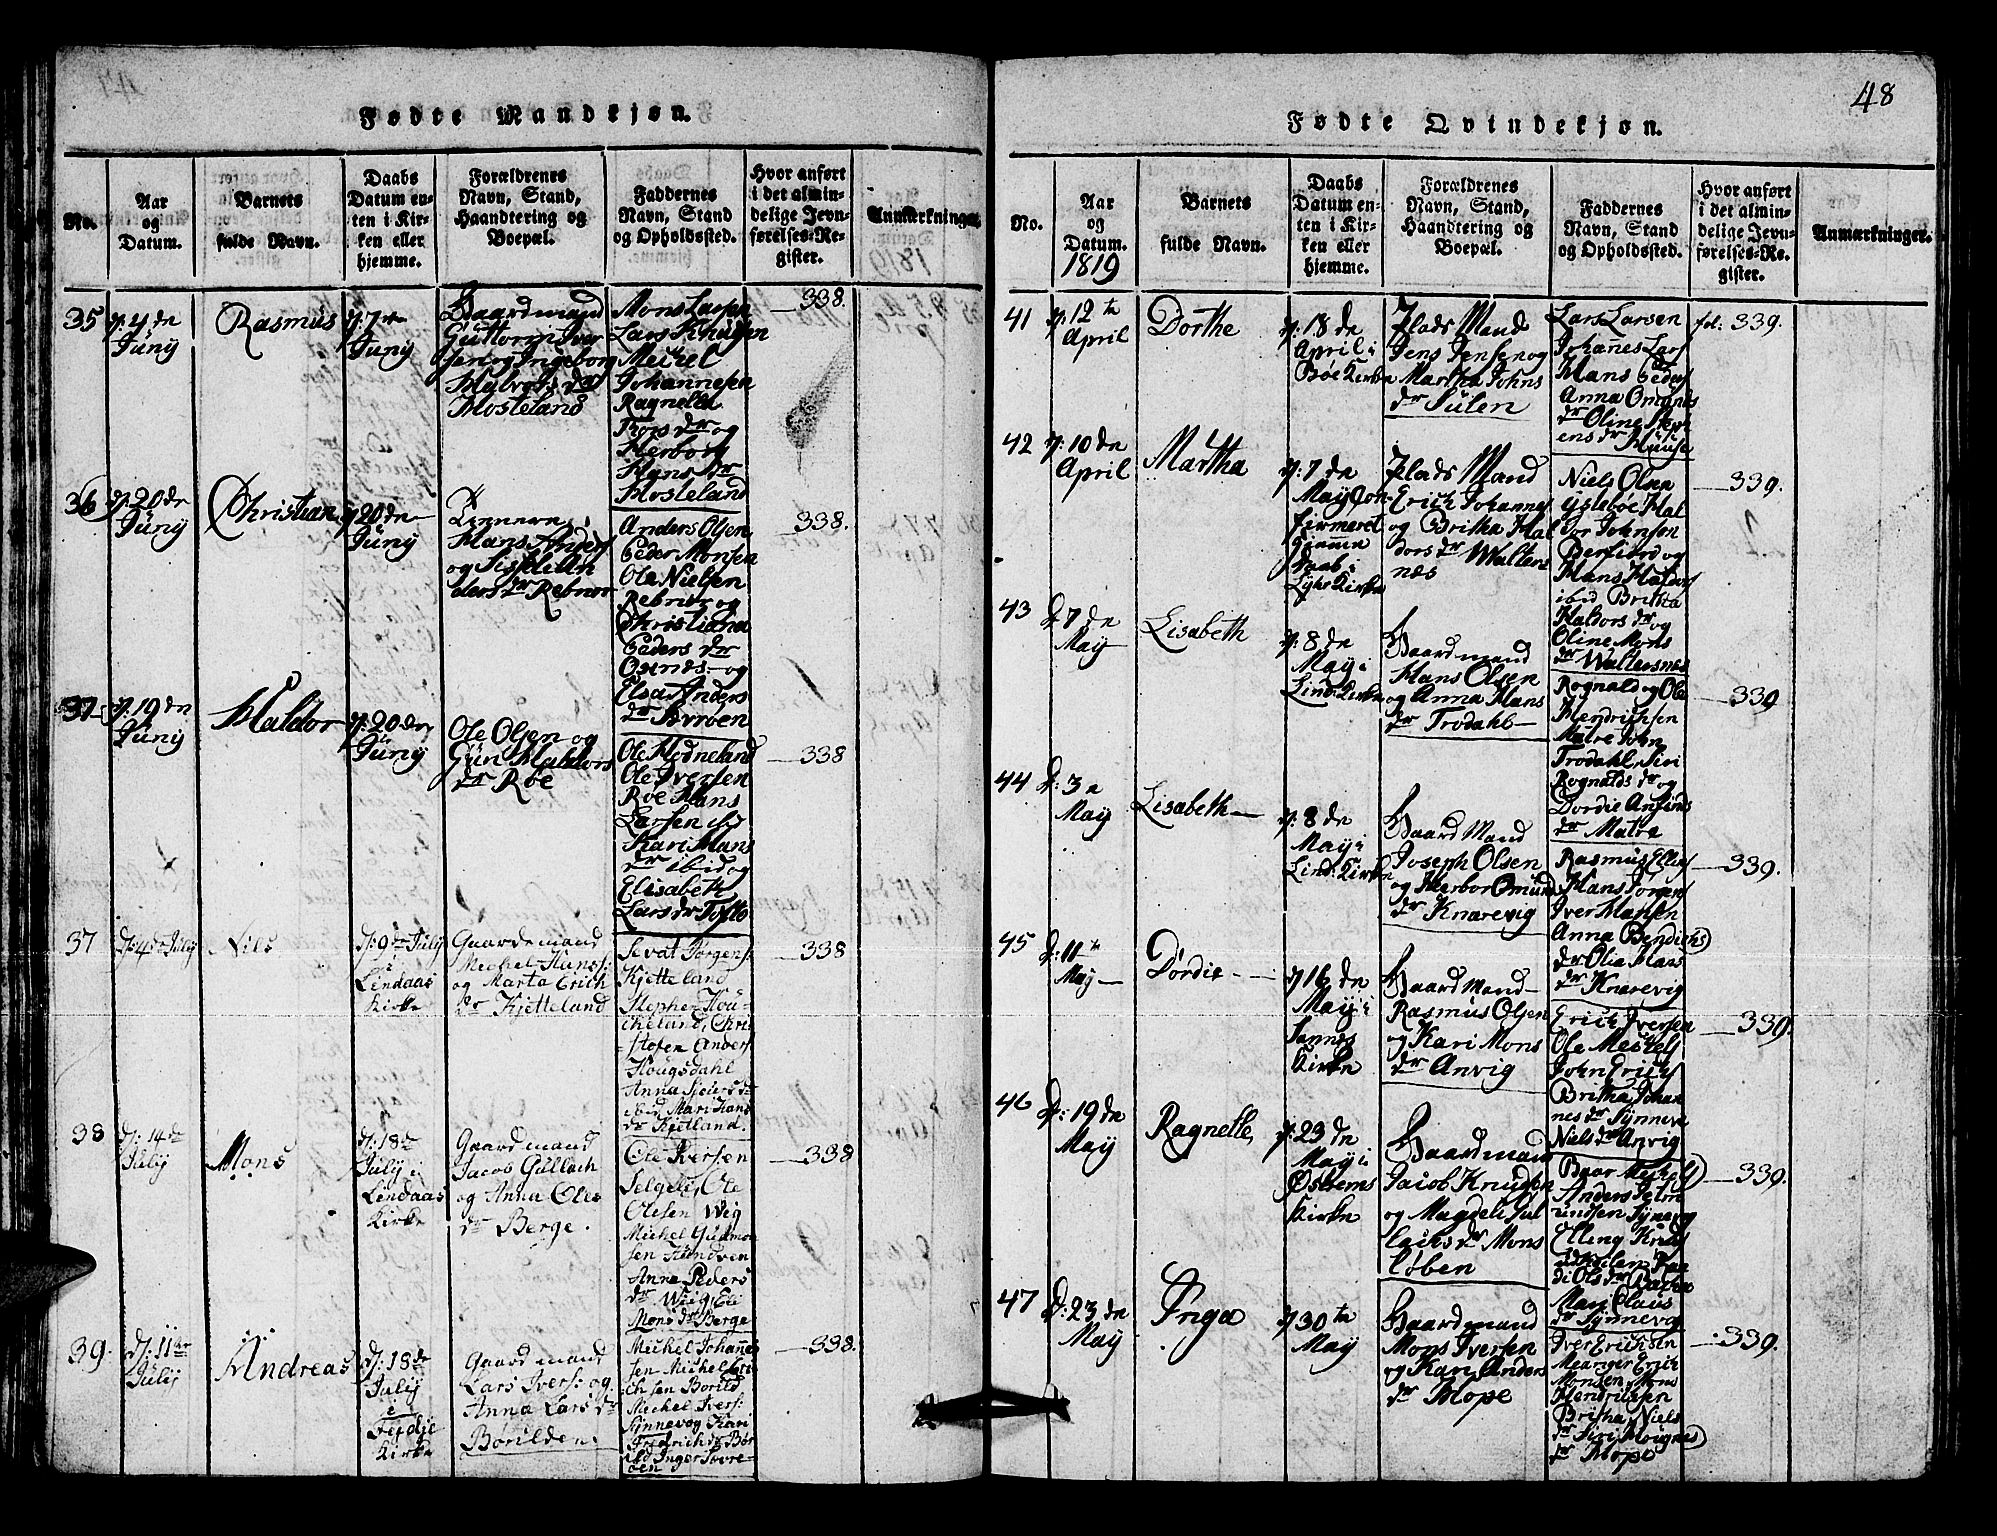 Fødte Mandkjøn.
No.
Aar
og
Datum.
Barnets
fulde Navn.
Daabs
Datum en-
ten i Kir-
ken eller
hjemme.
Forældrenes
Navn, Stand,
Haandtering og
Boepæl.
Faddernes
Navn, Stand
og Opholdssted.
Hvor anført
i det almin-
delige Jevn-
førelses-Re-
gister.
Anmærkninger.
35
4 de
Juny
Rasmus
7 de
Juny
Gaardmand
Guttorm Iver
sen og Ingeborg
Halvors dr
Mosteland
Mons
Lars Knudsen
Michel
Johannesen
Ragnelle
Thors dr og
Herborg
Hans dr
Mosteland
338.
36
20 de
Juny
Christian
20 de
Juny
Hans Anders
og Sissele An
ders dr Rebnor
Anders Olsen
Peder Monsen
Ole Nielsen
Rebnor og
Christiana
Peders dr
og
Elsa Anders
dr Byrøen
338.
37
19 de
Juny
Haldor
20 de
Juny
Ole Olsen og
Gun Haldors
dr Røe
Ole Hodneland
Ole Iversen
Røe Hans
Larsen ibd
Kari Hans
dr ibid og
Elisabeth
Lars dr Tofte
338
37
4 de July
Nils
9 de July
i
Lindaas
Kirke
Gaardemand
Michel Hans:
og Marta Erich
dr Kjetteland
Sevat Jørgens:
Kjetteland
Stephen Hou
cheland, Chri
stofen Anders
Hougsdahl
Anna
ibid, Mari Hans
dr Kjetland.
338
38
14 de
July
Mons
18 de
July i
Lindaas
Kirke
Gaardmand
Jacob Gullach
og Anna Oles
dr Berge.
Ole Iversen
Selgeli, Ole
Olesen Wiig
Michel Gudmon
sen Hundven
Anna Peders
dr Wiig, Eli
Mons dr Berge
338
39.
11 te
July
Andreas
18 de
July
i
Fedje
Kirke
Gaardmand
Lars Ivers: og
Anna Lars dr
Børilden.
Michel Johannes
sen Michel Eri
chsen Borild
Michel Ivers:
Synnevog Kari
Fredrichs dr Bør
ild Inger Sovre
øen
338.
48
Fødte Qvindekjøn.
No.
Aar
og
Datum.
1819
Barnets
fulde Navn.
Daabs
Datum en-
ten i Kir-
ken eller
hjemme.
Forældrenes
Navn, Stand,
Haandtering og
Boepæl.
Faddernes
Navn, Stand
og Opholdssted.
Hvor anført
i det almin-
delige Jevn-
førelses-Re-
gister.
Anmærkninger.
41
12 te
April
Dorthe
18 de
April i
Bøe Kirke
Plads Mand
Jens Jensen og
Martha Johns
dr Sulen
Lars Larsen
Johannes Lars
Hans Peders
Anna Omunds
dr Oline Steph
ens dr Kuuse
fol: 339.
42
10 de
April
Martha
7 de
May Con-
firmeret
Hiemme
Daab i
Lygre Kirke
Plads Mand
Erich Johannes
og Britha Hal
dors dr Walters
næs
Niels Olsen
Yslebøe Hal
dor Johnsen
Hans Haldors
ibid Britha
Haldors dr og
Oline Mons
dr Waltersnes
339.
43
D 7 de
May
Lisabeth
8 de
May i
Lind: Kirke
Gaardmand
Hans Olsen
og Anna Hans
dr Trodahl
Rognald og Ole
Hendrichsen
Matre John
Trodahl, Siri
Rognalds dr og
Dordie Anfinds
dr Matre
339
44
D: 3 e
May
Lisabeth
8 de
May i
Lind: Kirke
Gaard Mand
Joseph Olsen
og Herbor Omund
dr Knarevig
Rasmus Ellings
Hans Jørgens
Iver Hansen
Anna Bendichs
dr Olia Hans
dr Knarevig
339.
45
D: 11 te
May
Dørdie
16 de
May i
Sannes
Kirke
Gaard Mand
Rasmus Olsen
og Kari Mons
dr Anvig
Erich Iversen
Ole Michels
John Erichs
Britha Johan
nes dr Synneve
Niels dr Anvig
339.
46
D: 19 de
May
Ragnelle
23 de
May i
Østrems
Kirke
Gaardmand
Jacob Knudsen
og Magdeli Gul
lachs dr Mons
løben
Baar Michels
Anders
Elling Knud
di Ols dr
Mari Claus
dr Synnevog
339.
47
D: 23 de
May
Inga
30 te
May
Gaardmand
Mons Iversen
og Kari Anders
dr Mope
Iver Erichsen
Meanger Erich
Monsen, Mons
Hendrihsen
Britha Niels
dr Siri Magnes
dr Mope
339.